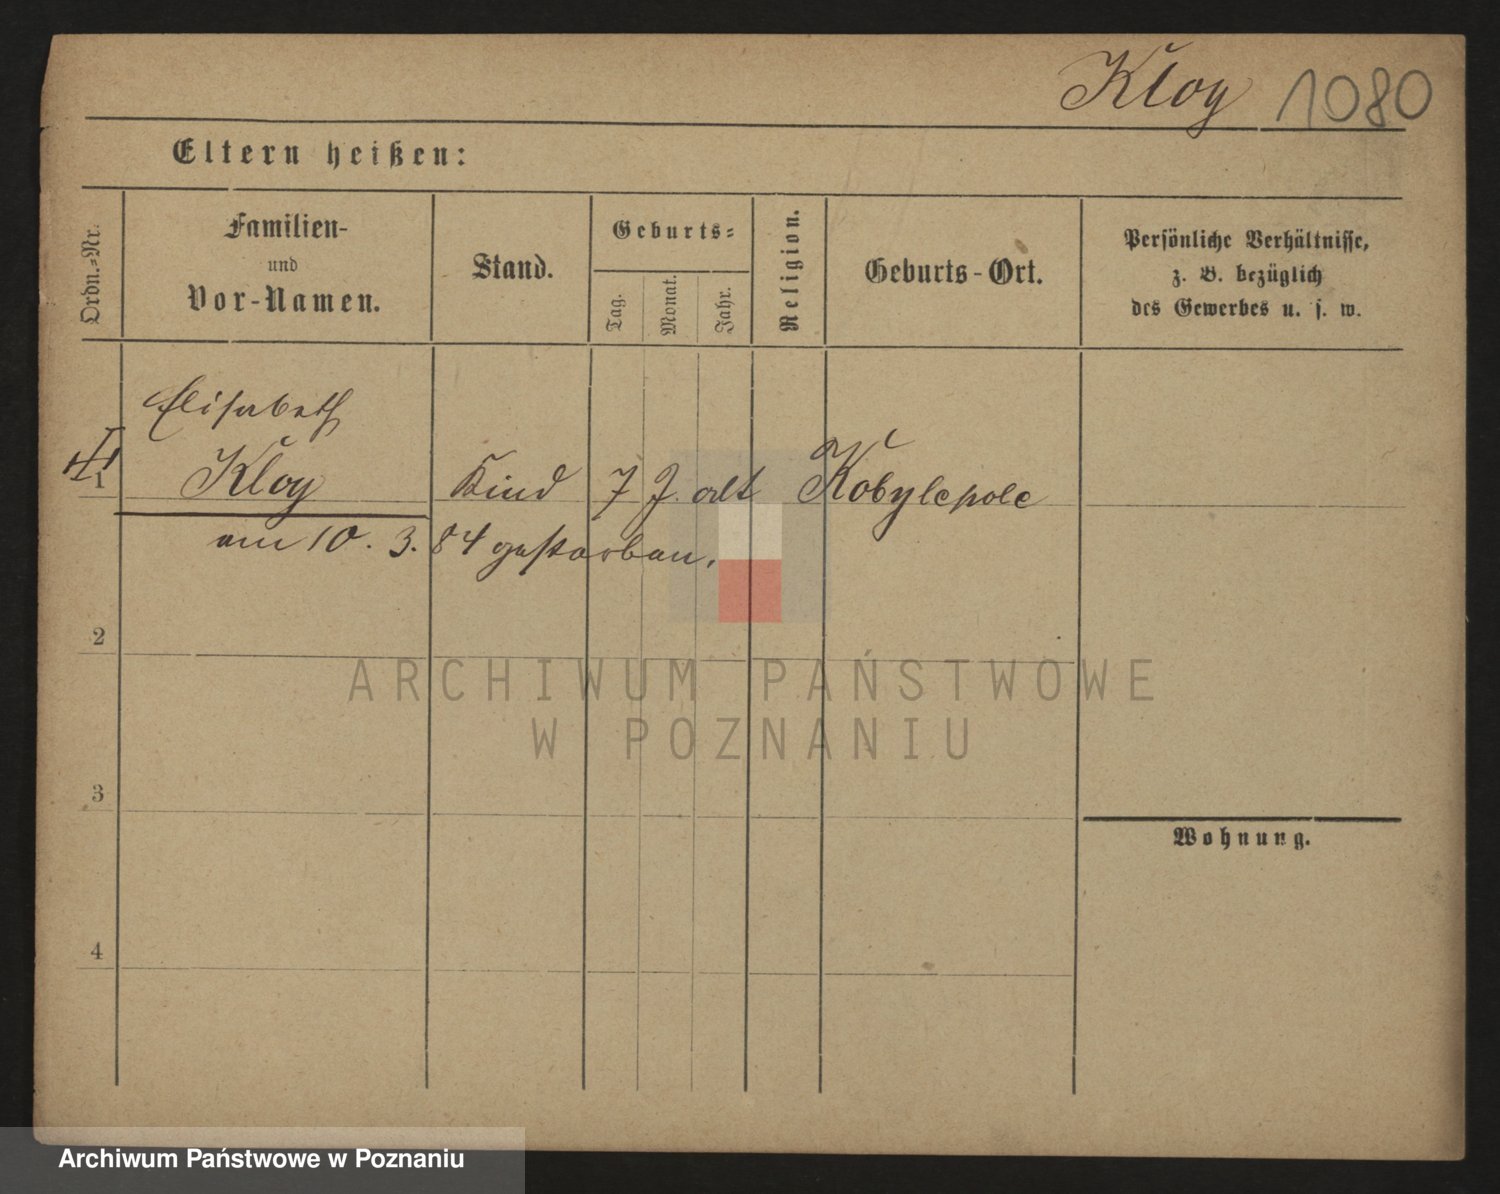 Kloy 1080
Eltern heißen:
Ordn.-Nr.
Familien-
und
Vor-Namen.
Stand.
Geburts-
Tag.
Monat.
Jahr.
Religion.
Geburts-Ort.
Persönliche Verhältnisse,
z. B. bezüglich
des Gewerbes u. s. w.
Elisabeth
1 Kloy Kind 7 J. alt Kobylepole
am 10. 3. 84 gestorben.
2
ARCHIWUM PAŃSTWOWE
W POZNANIU
3
Wohnung.
4
Archiwum Państwowe w Poznaniu